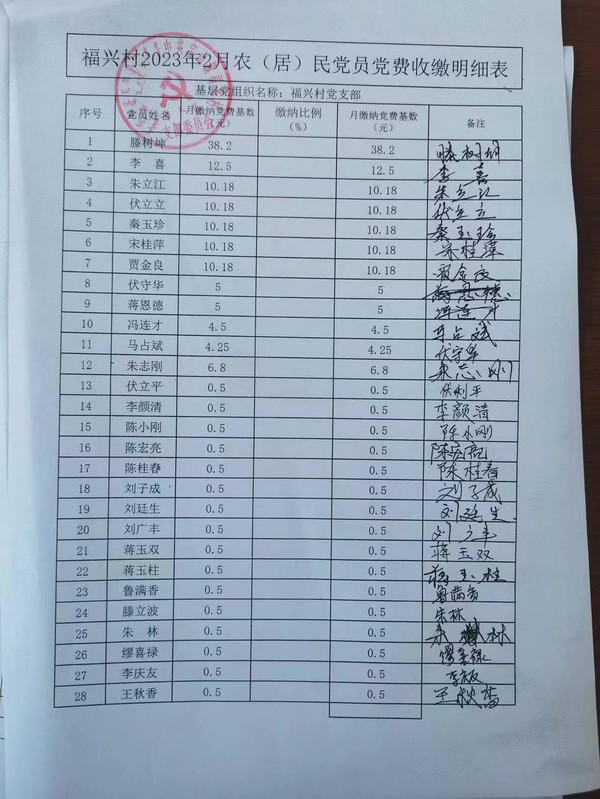 福兴村2023年2月农（居）民党员党费收缴明细表
基层党组织名称：福兴村党支部
序号 党员姓名 月缴纳党费基数（元） 缴纳比例（%） 月缴纳党费基数（元） 备注
1 滕树坤 38.2 38.2 滕树坤
2 李 喜 12.5 12.5 李喜
3 朱立江 10.18 10.18 朱立江
4 伏立立 10.18 10.18 伏立立
5 秦玉珍 10.18 10.18 秦玉珍
6 宋桂萍 10.18 10.18 宋桂萍
7 贾金良 10.18 10.18 贾金良
8 伏守华 5 5 蒋恩德
9 蒋恩德 5 5 冯连才
10 冯连才 4.5 4.5 马占斌
11 马占斌 4.25 4.25 伏守华
12 朱志刚 6.8 6.8 朱志刚
13 伏立平 0.5 0.5 伏利平
14 李颜清 0.5 0.5 李颜清
15 陈小刚 0.5 0.5 陈小刚
16 陈宏亮 0.5 0.5 陈宏亮
17 陈桂春 0.5 0.5 陈桂春
18 刘子成 0.5 0.5 刘子成
19 刘廷生 0.5 0.5 刘廷生
20 刘广丰 0.5 0.5 刘广丰
21 蒋玉双 0.5 0.5 蒋玉双
22 蒋玉柱 0.5 0.5 蒋玉柱
23 鲁满香 0.5 0.5 鲁满香
24 滕立波 0.5 0.5 朱林
25 朱 林 0.5 0.5 朱 林
26 缪喜禄 0.5 0.5 缪喜禄
27 李庆友 0.5 0.5
28 王秋香 0.5 0.5 王秋香